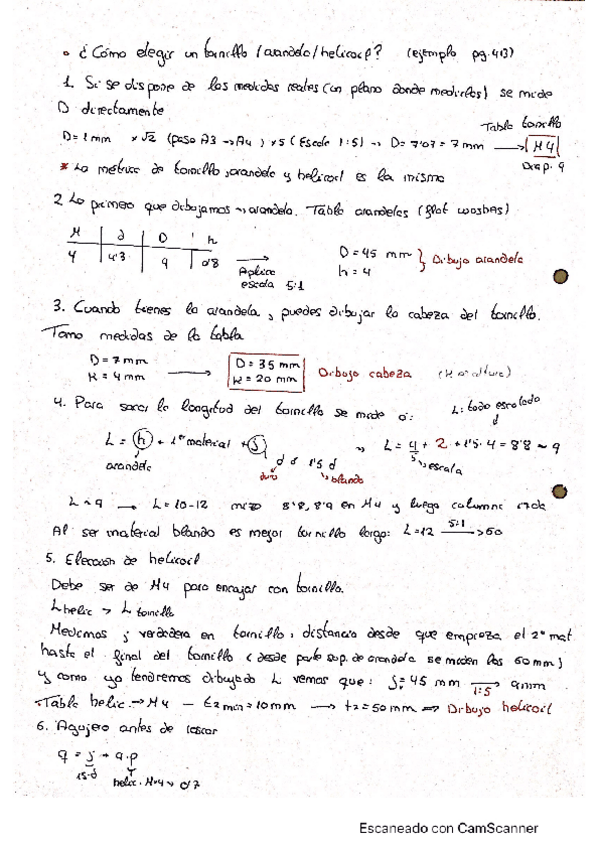 • ¿Cómo elegir un tornillo / arandela / helicoil? (ejemplo pg.413)
1. Si se dispone de las medidas reales (un plano donde medirlas) se mide
D directamente
Tabla tornillo
D = 1 mm x √2 (paso A3 → A4) x 5 (Escala 1:5) → D = 7'07 = 7 mm → M4
* La métrica de tornillo, arandela y helicoil es la misma
2 Lo primero que dibujamos → arandela. Tabla arandelas (flat washers)
M d D h
4 4'3 9 0'8
Aplico
escala 5:1
D = 45 mm
h = 4
Dibujo arandela
3. Cuando tienes la arandela, puedes dibujar la cabeza del tornillo.
Tomo medidas de la tabla
D = 7 mm
K = 4 mm
D = 35 mm
K = 20 mm
Dibujo cabeza (K altura)
4. Para sacar la longitud del tornillo se mide a: L: todo escalado
L = h + 1er material + j L = 4/5 + 2 + 1'5 · 4 = 8'8 ~ 9
arandela d ó 1'5 d escala
duro blando
L ~ 9 → L = 10-12 8'8, 8'9 en M4 y luego columna
Al ser material blando es mejor tornillo largo: L = 12 5:1 → 60
5. Elección de helicoil
Debe ser de M4 para encajar con tornillo.
L helic > L tornillo
Medimos j verdadera en tornillo, distancia desde que empieza el 2º mat
hasta el final del tornillo (desde parte sup. de arandela se miden los 60 mm)
Y como ya tendremos dibujado L vemos que: j = 45 mm 1:5 → 9mm
· Tabla helic. → M4 - t2 min = 10 mm → t2 = 50 mm → Dibujo helicoil
6. Agujero antes de roscar
q = j + a·p
1'5·d
helic. M4 → 0'7
Escaneado con CamScanner